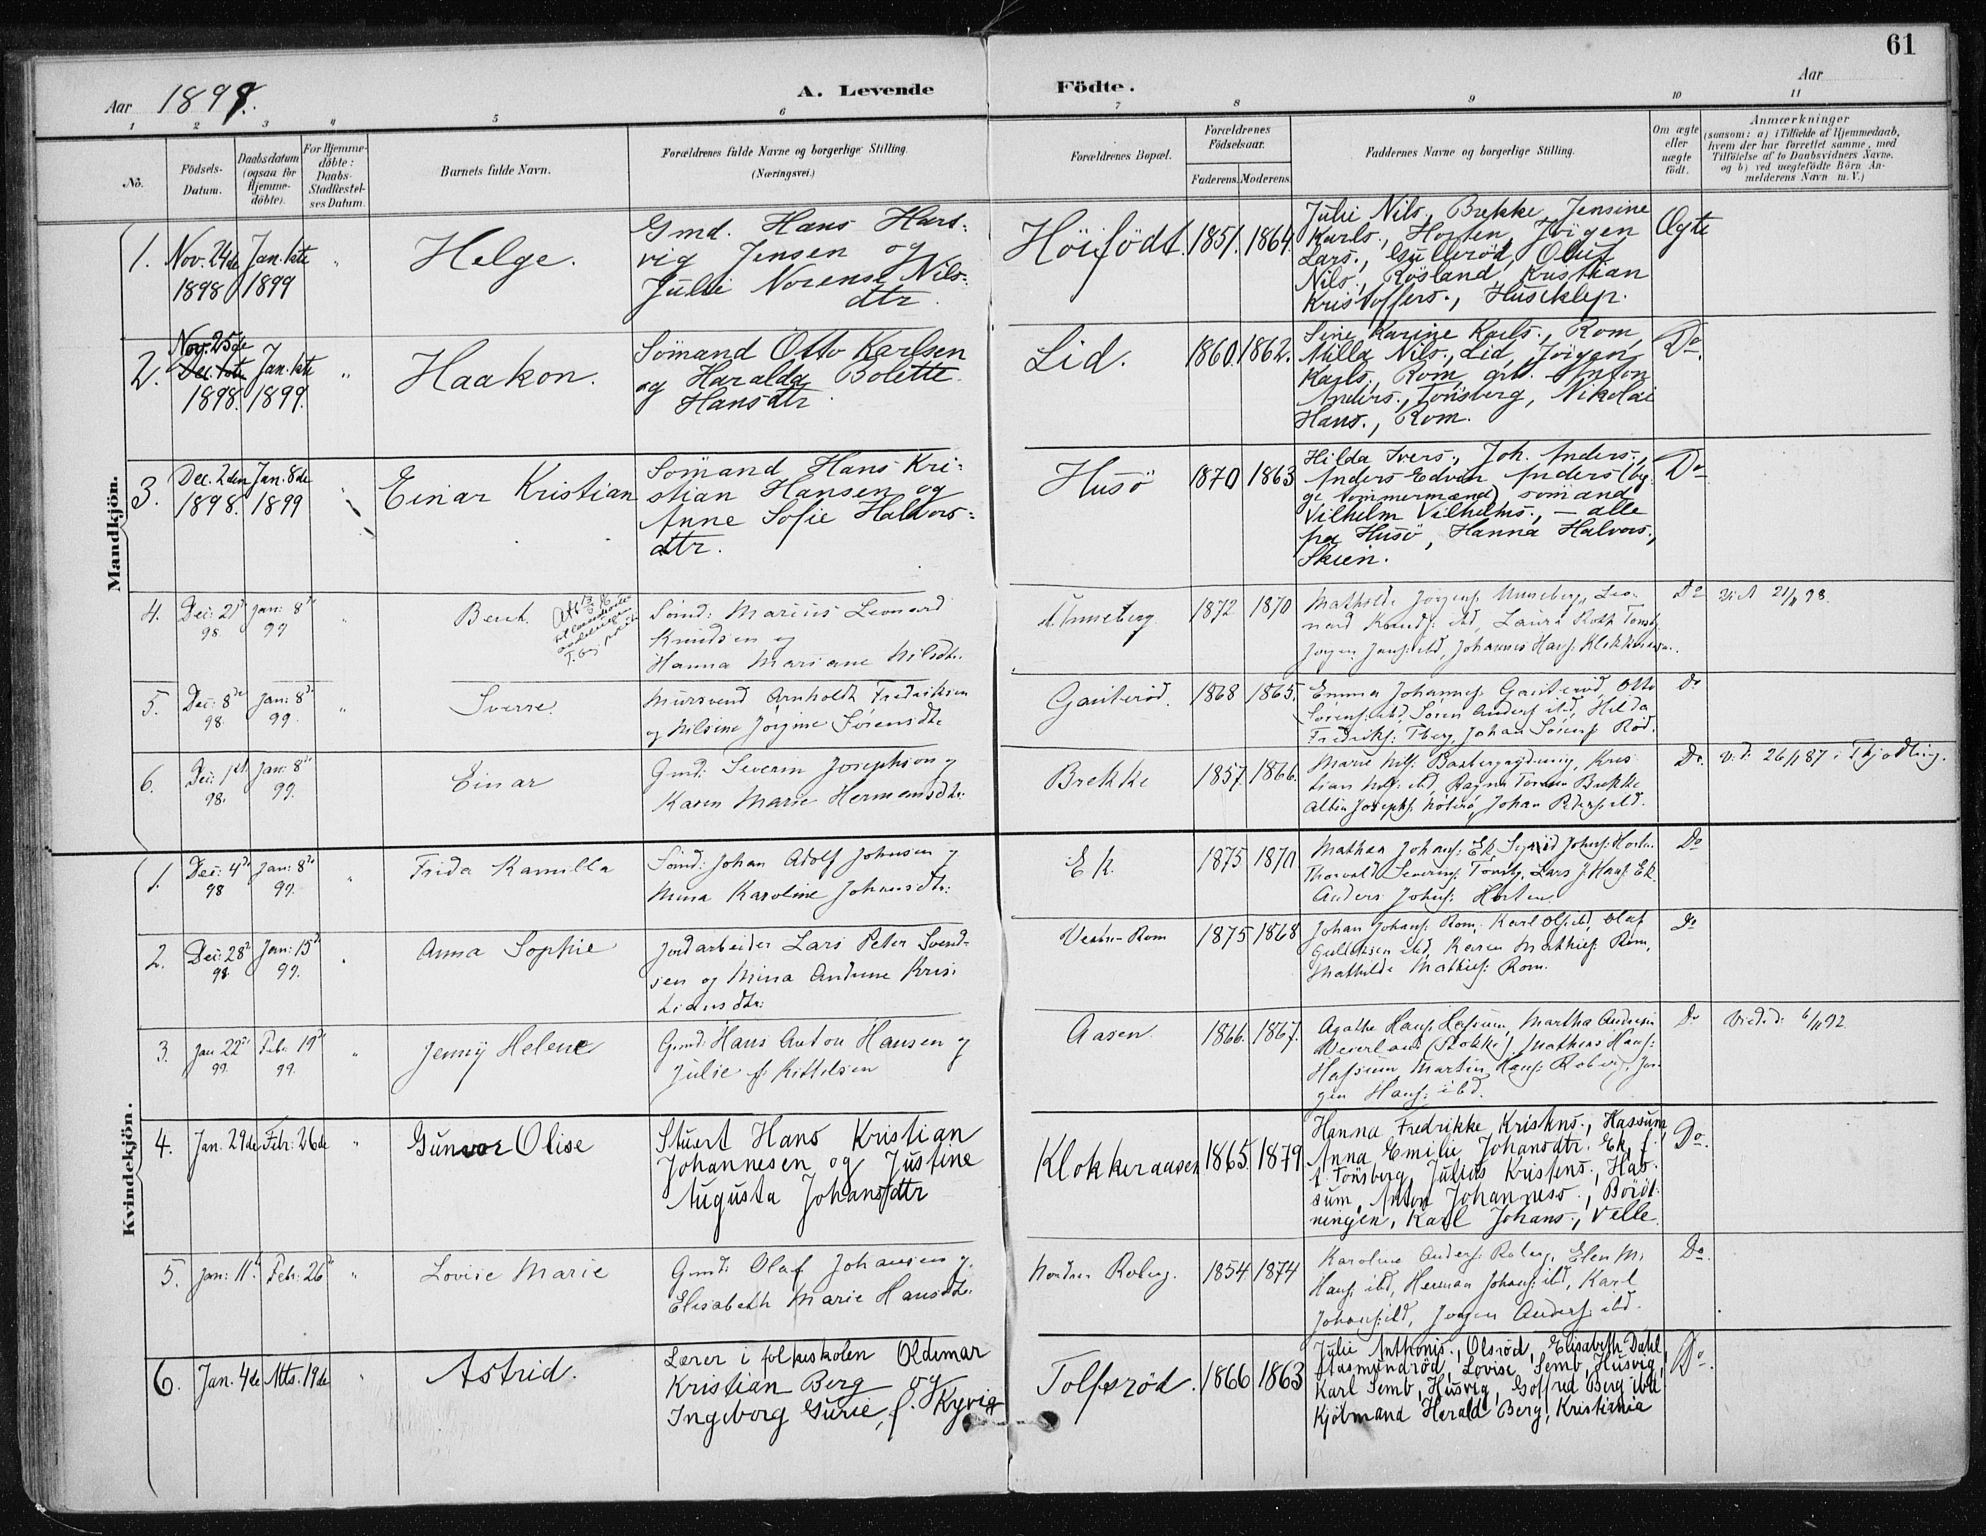 61
Aar 1899.
A. Levende Födte.
Aar
1 2 3 4 5 6 7 8 9 10 11
No.
Födsels-Datum.
Daabsdatum (ogsaa for Hjemme-döbte).
For Hjemme-döbte: Daabs-Stadfæstel-ses Datum.
Barnets fulde Navn.
Forældrenes fulde Navne og borgerlige Stilling. (Næringsvei.)
Forældrenes Bopæl.
Forældrenes Födselsaar.
Faderens. Moderens.
Faddernes Navne og borgerlige Stilling.
Om ægte eller uægte født.
Anmærkninger
(saasom: a) i Tilfælde af Hjemmedaab, hvem der har forrettet samme, med Tilföielse af to Daabsvidners Navne, og b) ved uægtefödte Börn Anmelderens Navn m. V.)
Mandkjön.
1. Nov. 24de 1898 Jan. 1ste 1899 " Helge. Gmd. Hans Hartvig Jensen og Julie Norense Nilsdtr. Höifödt. 1851. 1864. Julie Nils., Brekke, Jensine Karls., Horten, Jörgen Lars., Gullerød, Oluf Nils., Røsland, Kristian Kristoffers., Huseklep. Ægte
2. Nov. 25de Dec. 1ste 1898. Jan. 1ste 1899. " Haakon. Sömand Otto Karlsen og Haralda Bolette Hansdtr. Lid. 1860. 1862. Sine Karine Karls., Rom, Milla Nils., Lid, Jörgen Karls., Rom, arb. Anton Anders., Tönsberg, Nikolai Hans., Rom. Do.
3. Dec. 2den 1898. Jan. 8de 1899 " Einar Kristian Sömand Hans Kristian Hansen og Anne Sofie Halvorsdtr. Husö 1870 1863 Hilda Ivers., Joh. Anders., Anders Edvin Anders. (begge tömmermænd), sömand Vilhelm Vilhelms., – alle paa Husö, Hanna Halvors., Skien. Do
4. Dec: 21de 98. Jan: 8de 99 " Bernt. Sömd: Marius Leonard Knudsen og Hanna Mariane Nilsdtr. Unneberg 1872 1870 Mathilde Jörgens: Unneberg, Leonard Knuds: ibd, Laura Roth Tønsbg, Jorgen Jans: ibd, Johannes Hans: Klokkeraasen. Do Viet 21/ 98.
5. Dec: 8de 98. Jan: 8de 99. " Sverre. Mursvend Arnholdt Fredriksen og Nilsine Jørgine Sørensdtr. Gauterød. 1868 1865. Emma Johannes: Gauterød, Otto Sørens: ibd, Søren Anders: ibd, Hilda Fredriks: Tberg, Johan Sørens: Rød. Do
6. Dec: 1st 98. Jan: 8de 99. Einar Gmd: Severin Josephsen og Karen Marie Hermansdtr. Brekke 1857. 1866. Marie Nils: Kristian Nils: ibd, Ragna Brekke Albin Josephs: Nøterø, Johan Peders: ibd. Do. Vi. 26/ 87 i Tjødling.
Kvindekjön.
1. Dec: 4de 98 Jan: 8de 99. " Frida Kamilla Sömd: Johan Adolf Johnsen og Mina Karoline Johansdtr: Ek. 1875 1870 Mathea Johans: Ek, Sigrid Johns: Horten Thorvald Severins: Tønsbg, Lars J. Hans: Ek. Anders Johns: Horten. Do
2. Dec: 28de 98. Jan: 15de 99. " Anna Sophie Jordarbeider Lars Peter Svendsen og Mina Andrine Kristiansdtr: Vestre Rom 1875 1868 Johan Johans: Rom, Karl Ols: ibd, Olaf Gulliksen ibd, Karen Mathies: Rom, Mathilde Mathies: Rom. Do
3. Jan 22de 99. Feb: 19de 99. " Jenny Helene Gmd: Hans Anton Hansen og Julie f. Kittelsen Aasen. 1866. 1867. Agathe Hans: Hafsum, Martha Andresen (Stokke), Mathias Hans: Hafsum, Martin Hans: Roberg, Jørgen Hans: ibd. Do Viede: 6/ 92.
4. Jan. 29de Febr: 26de " Gunvor Olise Stuert Hans Kristian Johannesen og Justine Augusta Johansdtr Klokkeraasen 1865. 1879 Hanna Fredrikke Kristens., Hassum, Anna Emilie Johansdtr. Ek, f. t. Tönsberg, Julius Kristens., Hassum, Anton Johanness., Böröðningen, Karl Johans., Velle. Do.
5. Jan: 11te Febr: 26de " Lovise Marie Gmd: Olaf Johansen og Elisabeth Marie Hansdtr: Nordre Roberg. 1854 1874 Karoline Anders: Roberg, Elen M. Hans: ibd, Herman Johans: ibd, Karl Johans: ibd, Jørgen Anders: ibd. Do.
6. Jan. 4de Mts. 19de " Astrid. Lærer i folkeskolen Oldemar Kristian Berg og Ingeborg Gurie, f. Kyvig Tolfsröd. 1866 1863 Julie Anthonis., Olsröd, Elisabeth Dahl, Aasmundröd, Lovise Semb, Husvig, Karl Semb, Husvig, Goffred Berg ibd Kjöbmand Herald Berg, Kristiania Do.